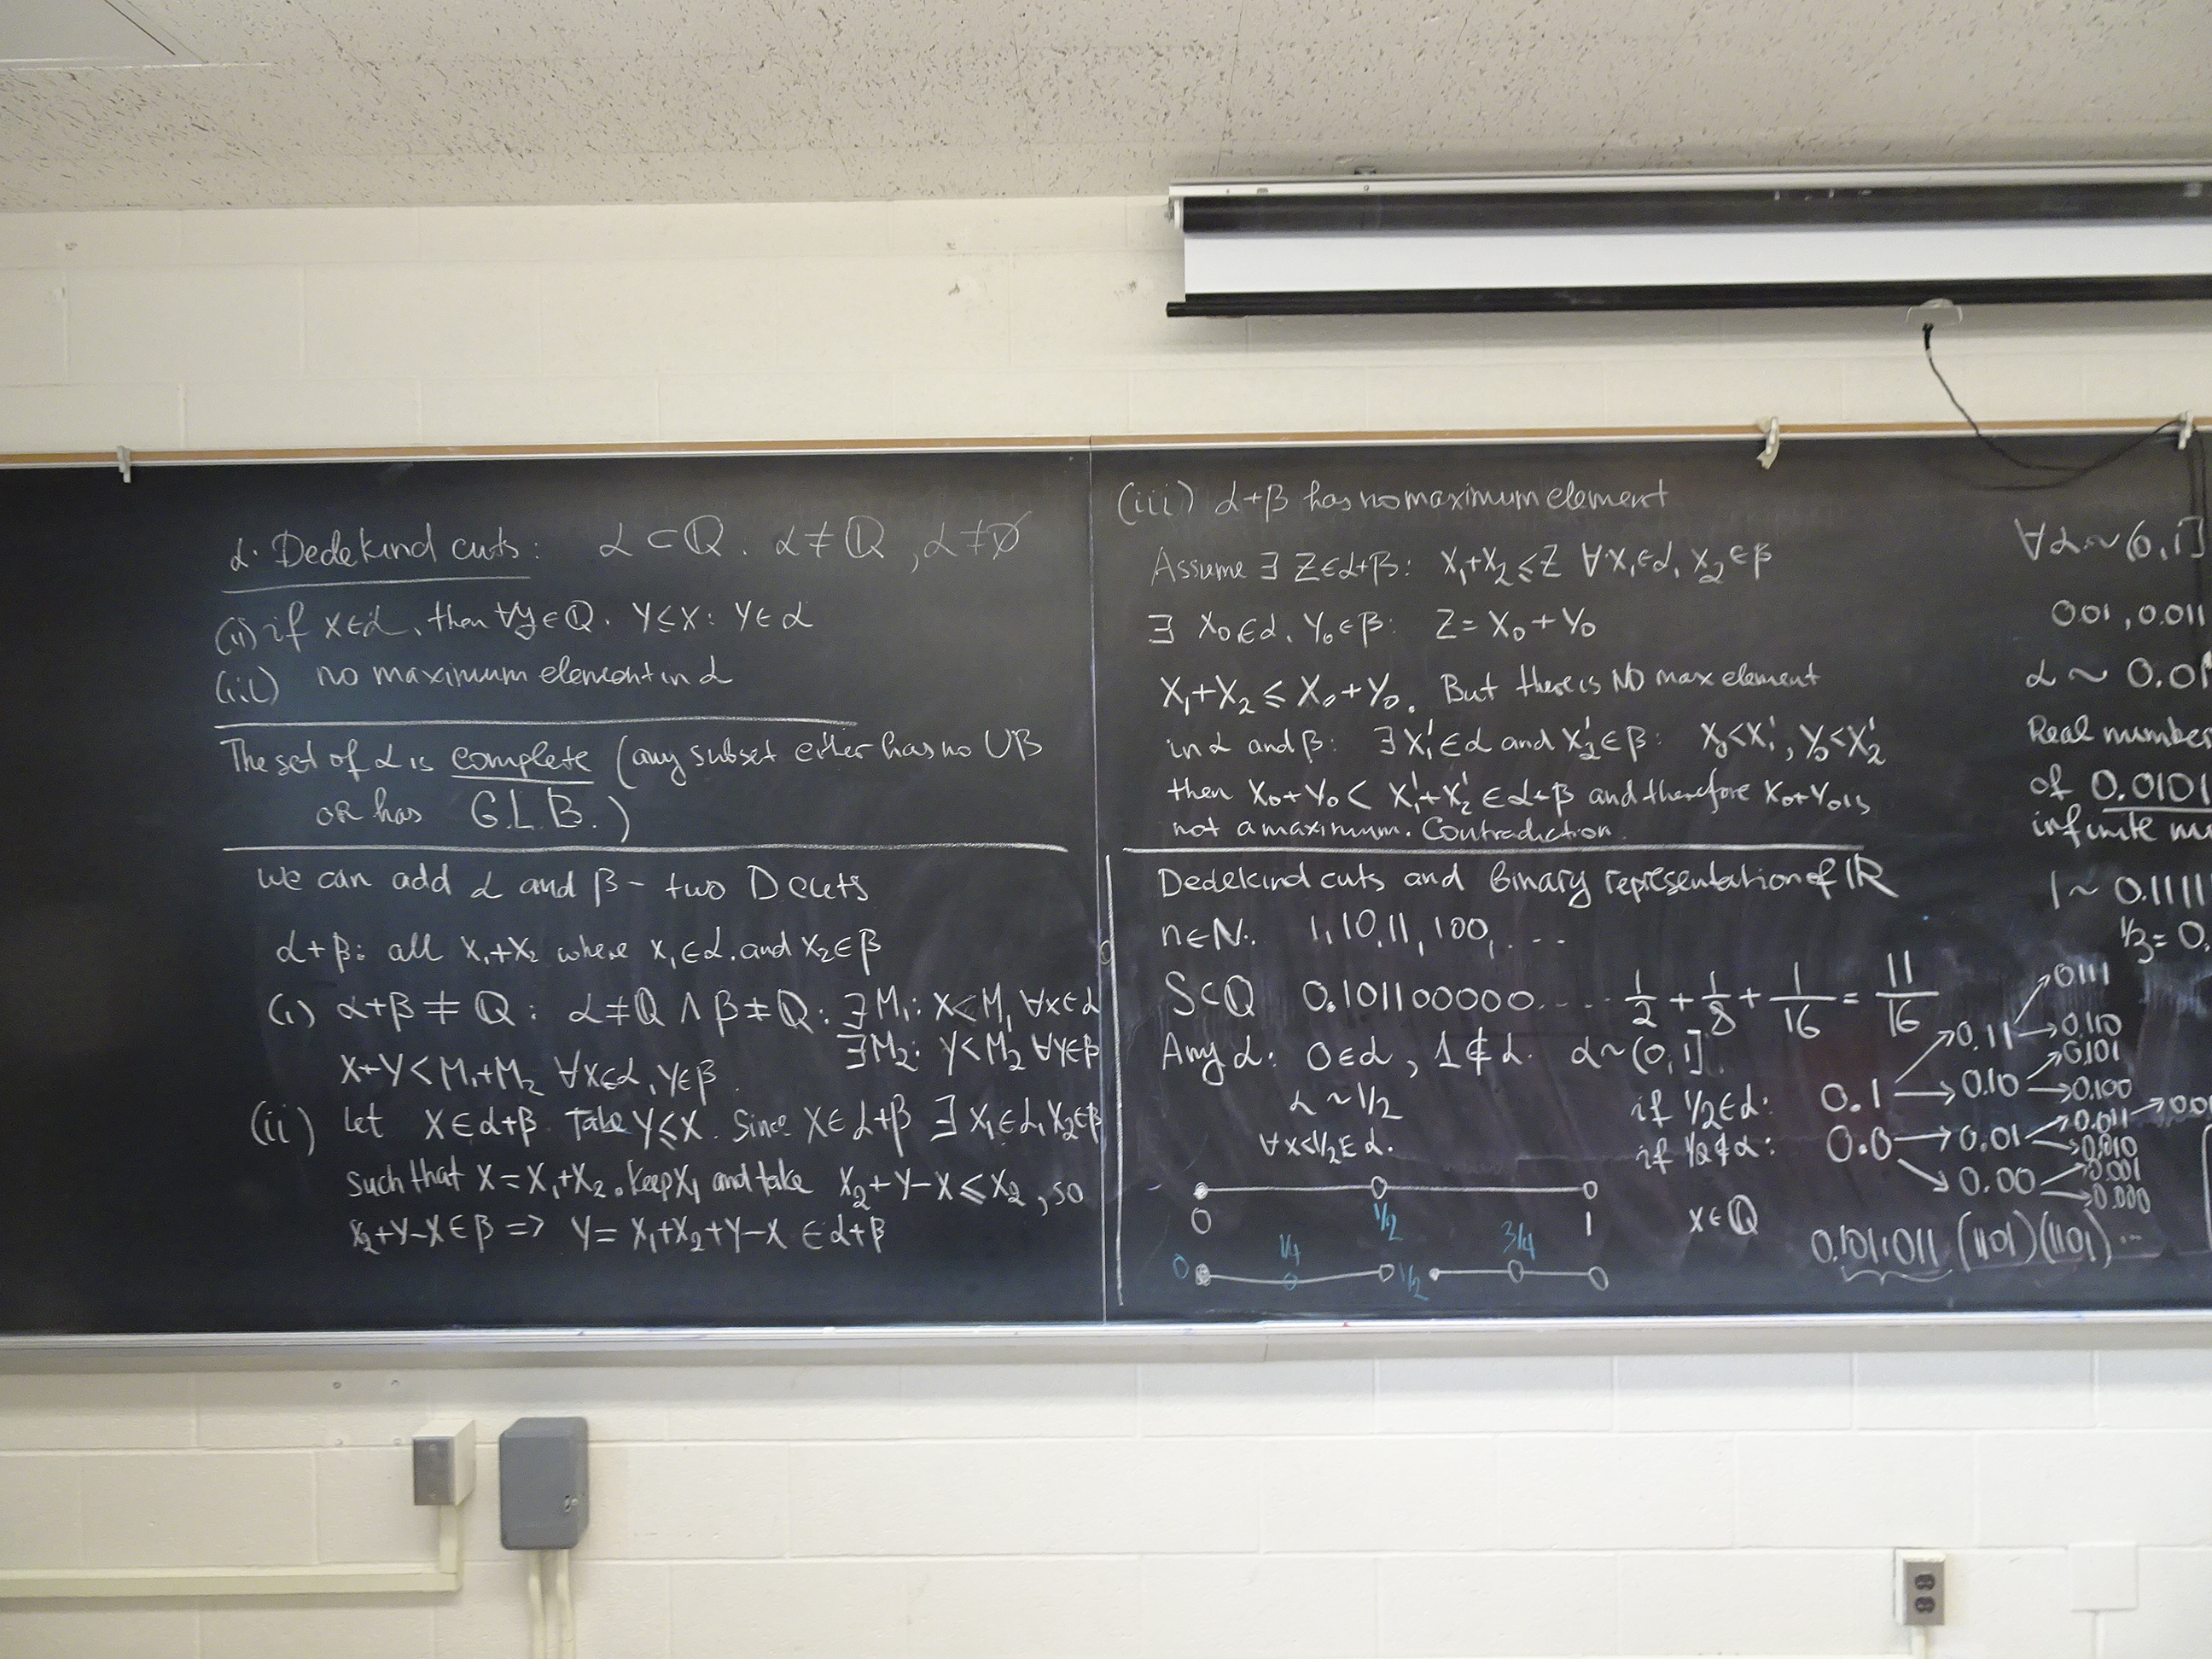 α. Dedekind cuts: α ⊂ ℚ. α ≠ ℚ, α ≠ ∅
(ii) if x∈α, then ∀y∈ℚ. y ≤ x: y ∈ α
(iii) no maximum element in α
The set of α is complete (any subset either has no UB
or has G.L.B.)
we can add α and β - two D cuts
α+β: all x₁+x₂ where x₁∈α. and x₂∈β
(i) α+β ≠ ℚ: α≠ℚ ∧ β≠ℚ: ∃M₁: x<M₁ ∀x∈α
∃M₂: y<M₂ ∀y∈β
x+y<M₁+M₂ ∀x∈α, y∈β.
(ii) Let x∈α+β. Take y≤x. Since x∈α+β ∃ x₁∈α, x₂∈β
such that x = x₁+x₂. Keep x₁ and take x₂+y-x ≤ x₂, so
x₂+y-x∈β => y = x₁+x₂+y-x ∈ α+β
(iii) α+β has no maximum element
Assume ∃ z∈α+β: x₁+x₂ ≤ z ∀x₁∈α, x₂∈β
∃ x₀∈α, y₀∈β: z = x₀+y₀
x₁+x₂ ≤ x₀+y₀. But there is NO max element
in α and β: ∃ x₁'∈α and x₂'∈β: x₀<x₁', y₀<x₂'
then x₀+y₀ < x₁'+x₂' ∈ α+β and therefore x₀+y₀ is
not a maximum. Contradiction.
Dedekind cuts and Binary representation of ℝ
n∈ℕ: 1, 10, 11, 100, ...
S⊂ℚ 0.101100000.... 1/2 + 1/8 + 1/16 = 11/16
Any α: 0∈α, 1∉α. α~(0,1]
α ~ 1/2
∀x<1/2∈α.
0 1/2 1
0 1/4 1/2 3/4
if 1/2∈α: 0.1 → 0.11 → 0.111
→ 0.110
→ 0.10 → 0.101
→ 0.100
if 1/2∉α: 0.0 → 0.01 → 0.011
→ 0.010
→ 0.00 → 0.001
→ 0.000
x∈ℚ 0.1011011(1101)(1101)...
∀α~(0,1]
0.01, 0.011
α ~ 0.01
Real number
of 0.0101
infinite
1 ~ 0.1111
1/3 = 0.